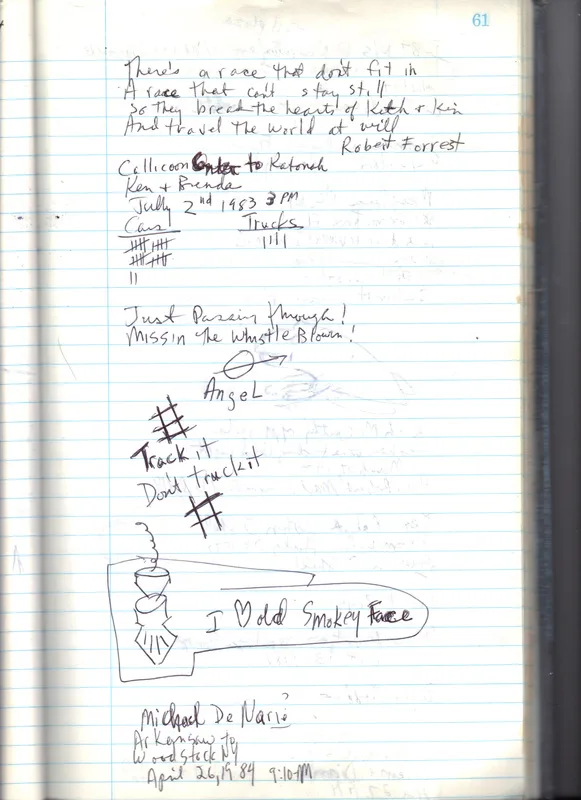 61
There's a race that don't fit in
A race that can't stay still
So they break the hearts of Kith & Kin
And travel the world at will
Robert Forrest
Callicoon Center to Katonah
Ken & Brenda
July 2nd 1983 3 PM
Cars Trucks
Just Passin through!
Missin the Whistle Blown!
Angel
Track it
Don't truck it
I ♡ old Smokey Face
Michael De Marie?
Arkensaw to
Woodstock NY
April 26, 1984 9:10 PM